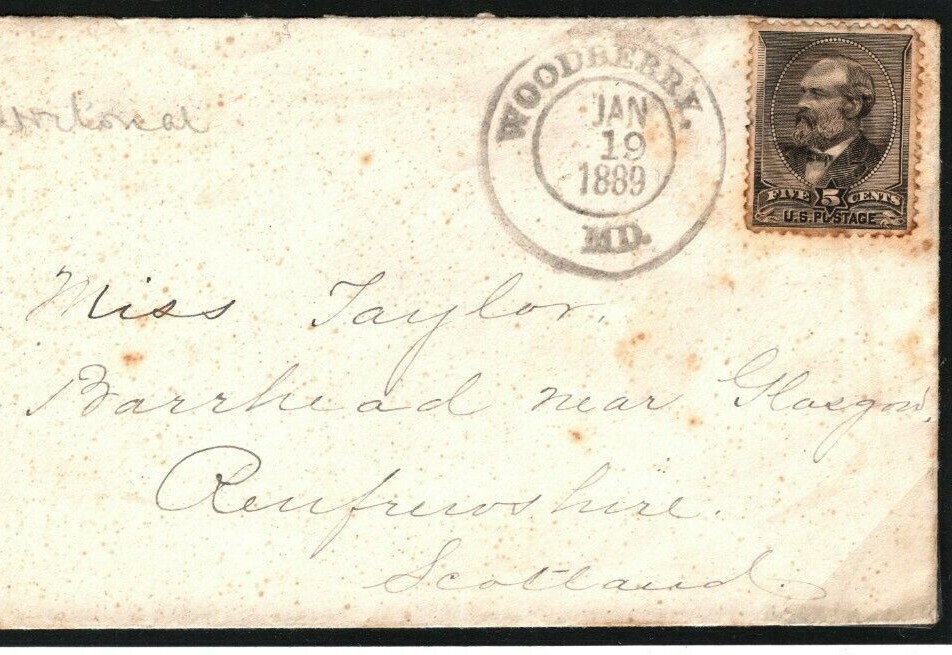 WOODBERRY.
JAN
19
1889
MD.
FIVE 5 CENTS
U.S. POSTAGE
Miss Taylor,
Barrhead near Glasgow,
Renfrewshire.
Scotland.